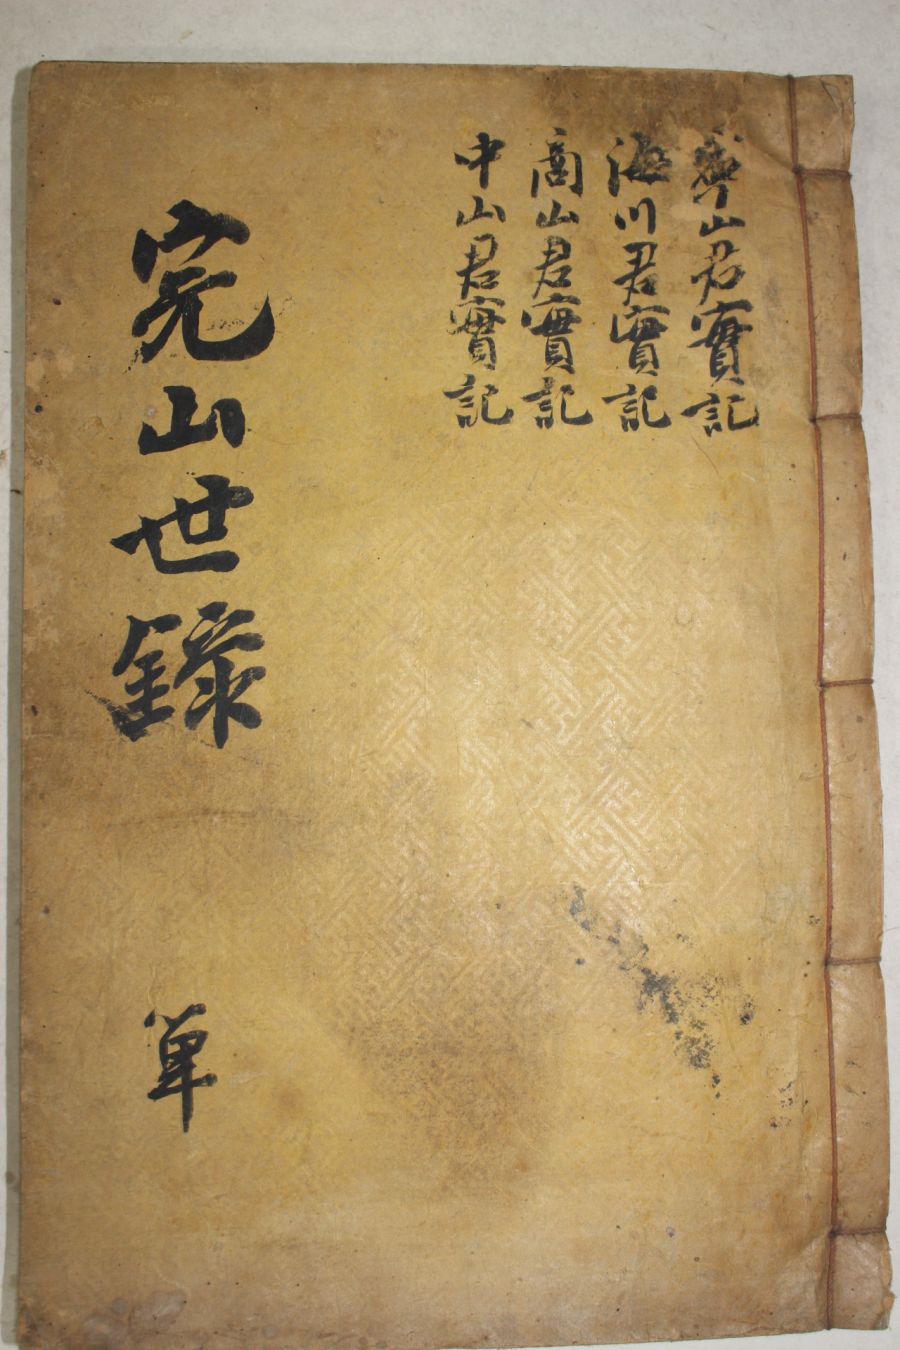 寧山君實記
海川君實記
商山君實記
中山君實記
完山世錄
單